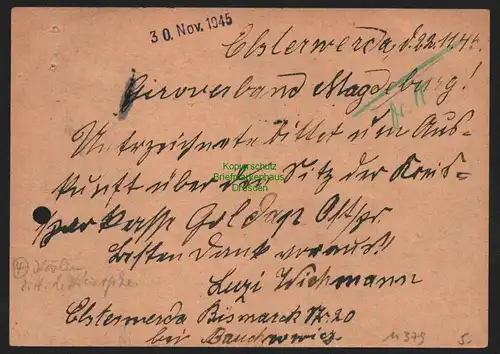 30. Nov. 1945
Elsterwerda, d. 22.11.45.
Giroverband Magdeburg!
Unterzeichnete bittet um Aus-
kunft über den Sitz der Kreis-
sparkasse Goldap Ostpr
Besten Dank voraus!
Luzi Wichmann
Elsterwerda Bismarckstr. 20
bei
Kopierschutz
Briefmarkenhaus
Dresden
11379
5.